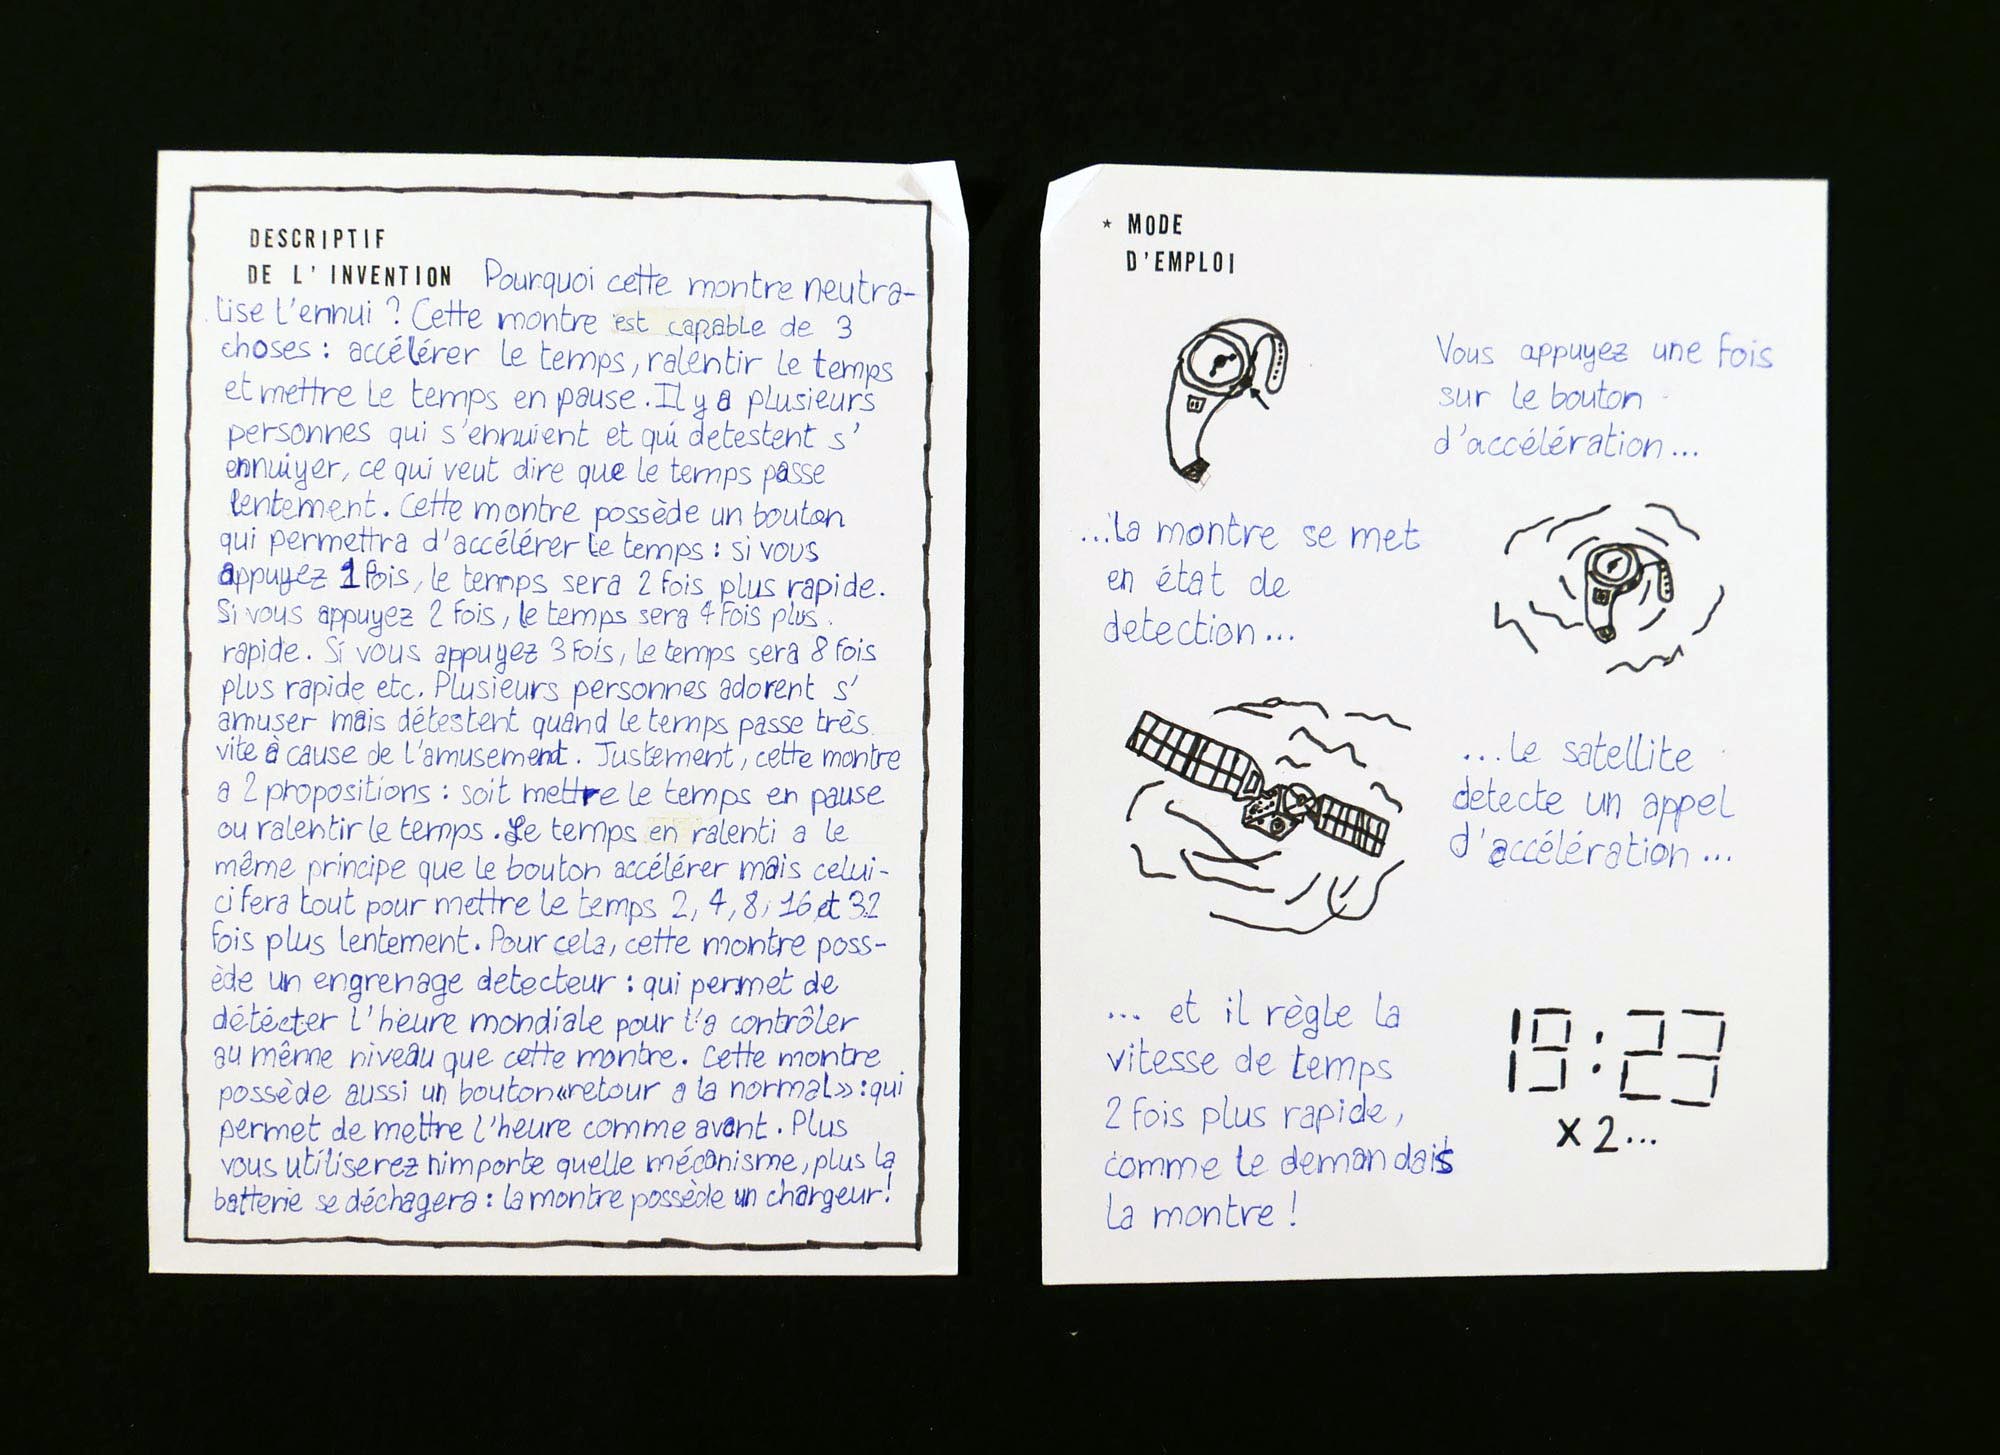 DESCRIPTIF
DE L'INVENTION Pourquoi cette montre neutra-
lise l'ennui ? Cette montre est capable de 3
choses : accélérer le temps, ralentir le temps
et mettre le temps en pause. Il y a plusieurs
personnes qui s'ennuient et qui detestent s'
ennuiyer, ce qui veut dire que le temps passe
lentement. Cette montre possède un bouton
qui permettra d'accélérer le temps : si vous
appuyez 1 fois, le temps sera 2 fois plus rapide.
Si vous appuyez 2 fois, le temps sera 4 fois plus
rapide. Si vous appuyez 3 fois, le temps sera 8 fois
plus rapide etc. Plusieurs personnes adorent s'
amuser mais détestent quand le temps passe très
vite à cause de l'amusement. Justement, cette montre
a 2 propositions : soit mettre le temps en pause
ou ralentir le temps. Le temps en ralenti a le
même principe que le bouton accélérer mais celui-
ci fera tout pour mettre le temps 2, 4, 8, 16 et 32
fois plus lentement. Pour cela, cette montre poss-
ède un engrenage detecteur : qui permet de
détécter l'heure mondiale pour la contrôler
au même niveau que cette montre. Cette montre
possède aussi un bouton «retour a la normal» : qui
permet de mettre l'heure comme avant. Plus
vous utiliserez nimporte quelle mécanisme, plus la
batterie se déchagera : la montre possède un chargeur!
* MODE
D'EMPLOI
Vous appuyez une fois
sur le bouton
d'accélération...
...la montre se met
en état de
detection...
...le satellite
detecte un appel
d'accélération...
... et il règle la
vitesse de temps
2 fois plus rapide,
comme le demandais
la montre !
19:23
x 2...